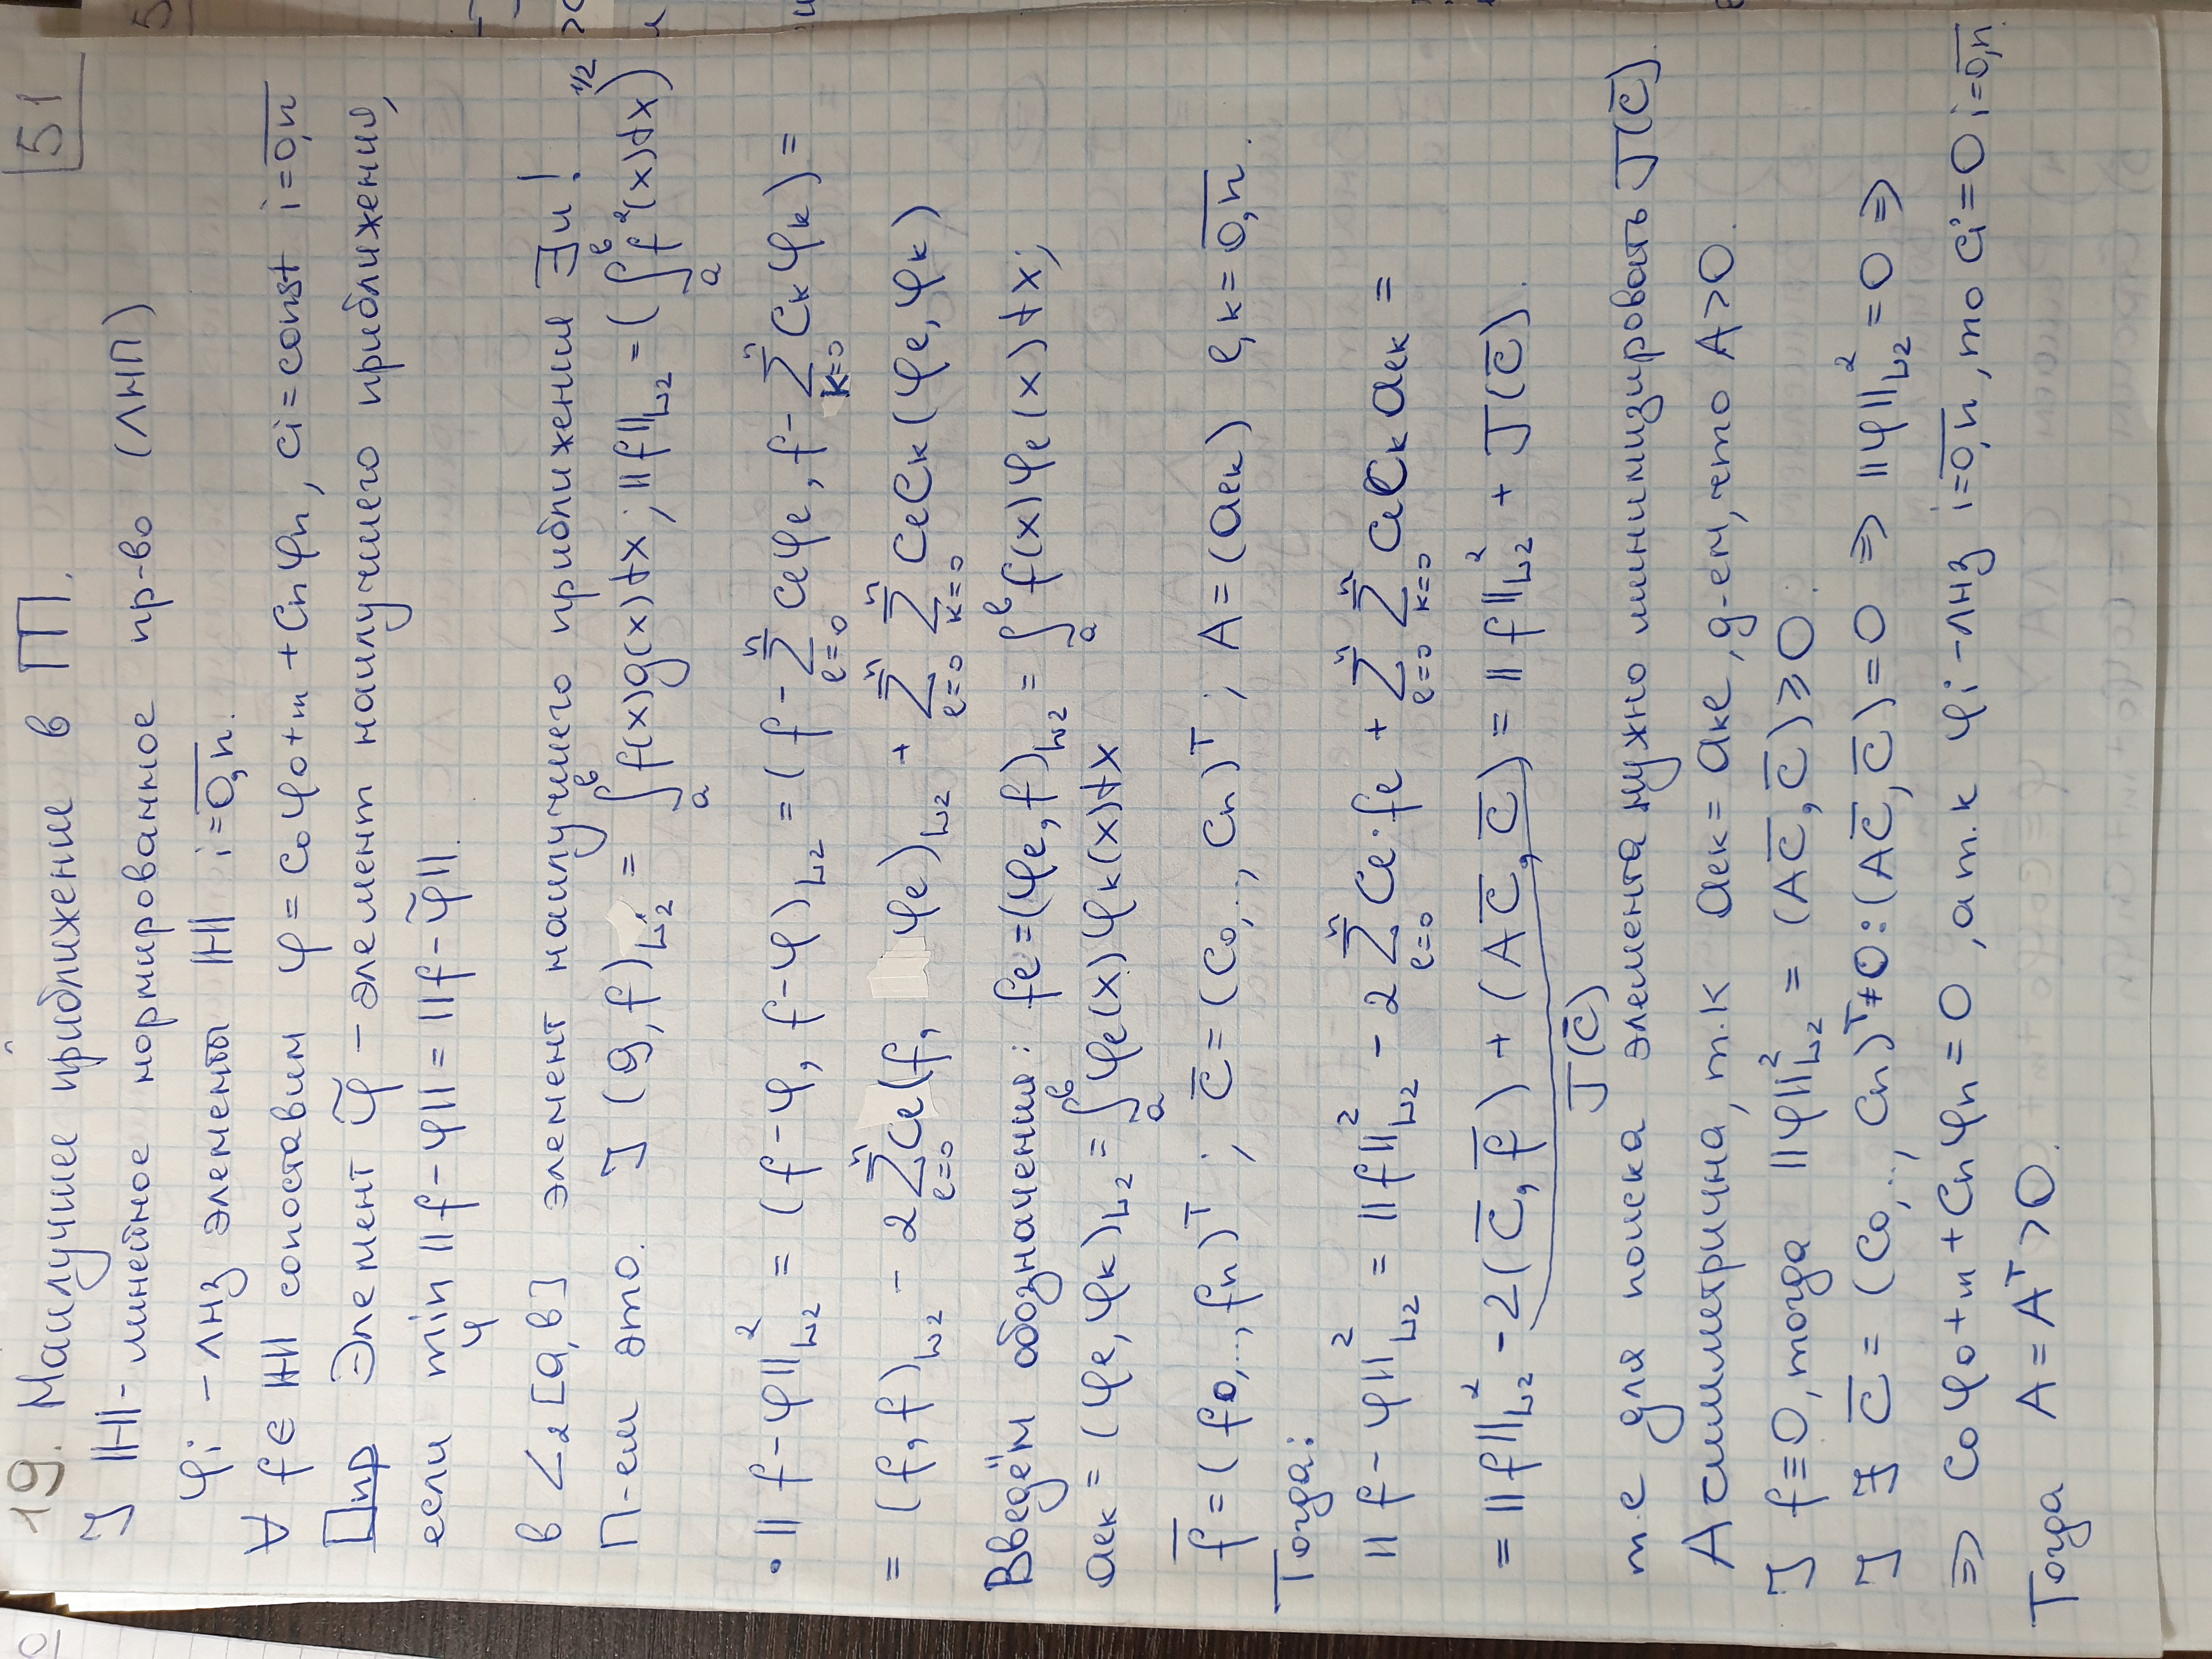 51
19. Наилучшее приближение в ГП.
] H - линейное нормированное пр-во (ЛНП)
φi - ЛНЗ элементы H i=0,n.
∀ f∈H сопоставим φ = c0φ0+...+cnφn, ci=const i=0,n
Опр Элемент φ̃ - элемент наилучшего приближения,
если min ||f-φ|| = ||f-φ̃||.
φ
в L2[a,b] элемент наилучшего приближения ∃ и !
П-ем это. ] (g,f)L2 = ∫ab f(x)g(x)dx; ||f||L2 = (∫ab f²(x)dx)^1/2
• ||f-φ||²L2 = (f-φ, f-φ)L2 = (f - Σl=0n clφl, f - Σk=0n ckφk) =
= (f,f)L2 - 2Σl=0n cl(f, φl)L2 + Σl=0n Σk=0n clck(φl,φk)
Введём обозначения: fl=(φl,f)L2 = ∫ab f(x)φl(x)dx;
alk = (φl,φk)L2 = ∫ab φl(x)φk(x)dx
f̄ = (f0,..,fn)T; c̄ = (c0,.., cn)T; A = (alk) l,k=0,n.
Тогда:
||f-φ||²L2 = ||f||²L2 - 2Σl=0n cl·fl + Σl=0n Σk=0n clckalk =
= ||f||²L2 - 2(c̄,f̄) + (Ac̄,c̄) = ||f||²L2 + J(c̄).
J(c̄)
т.е для поиска элемента нужно минимизировать J(c̄).
A симметрична, т.к alk = akl, д-ем, что A>0.
] f≡0, тогда ||φ||²L2 = (Ac̄,c̄) ≥ 0.
] ∃ c̄ = (c0,.., cn)T≠0: (Ac̄,c̄)=0 ⇒ ||φ||²L2 = 0 ⇒
⇒ c0φ0+...+cnφn=0, а т.к φi - ЛНЗ i=0,n, то ci=0 i=0,n.
Тогда A = AT > 0.